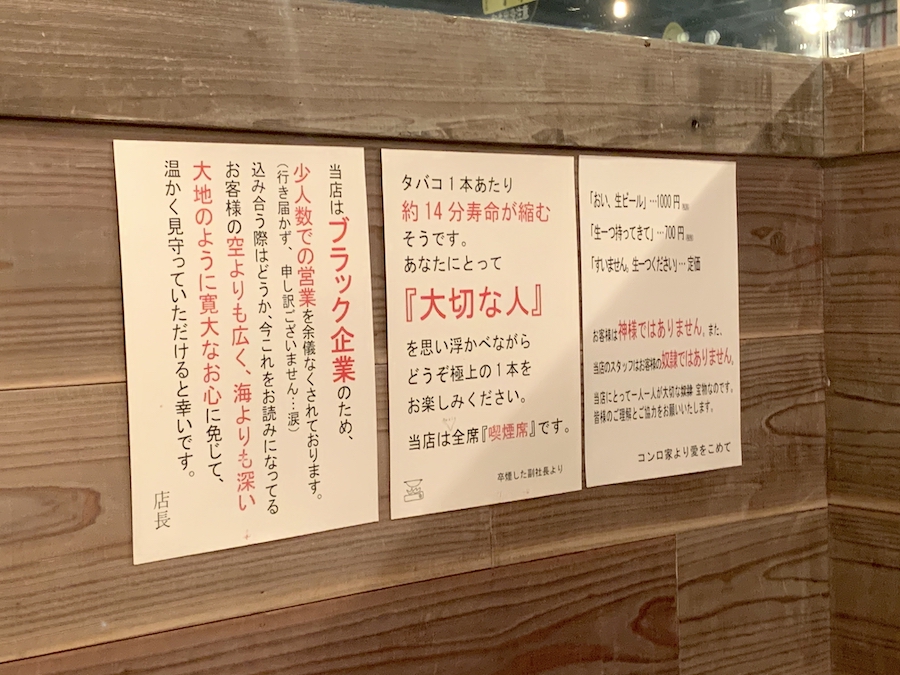 当店は、ブラック企業のため、
少人数での営業を余儀なくされております。
(行き届かず、申し訳ございません…涙)
込み合う際はどうか、今これをお読みになってる
お客様の空よりも広く、海よりも深い
大地のように寛大なお心に免じて、
温かく見守っていただけると幸いです。
店長
タバコ1本あたり
約14分寿命が縮む
そうです。
あなたにとって
『大切な人』
を思い浮かべながら
どうぞ極上の1本を
お楽しみください。
当店は全席『喫煙席』です。
卒煙した副社長より
「おい、生ビール」…1000円
「生一つ持ってきて」…700円
「すいません。生一つください」…定価
お客様は神様ではありません。また、
当店のスタッフはお客様の奴隷ではありません。
当店にとって一人一人が大切な奴隷 宝物なのです。
皆様のご理解とご協力をお願いいたします。
コンロ家より愛をこめて